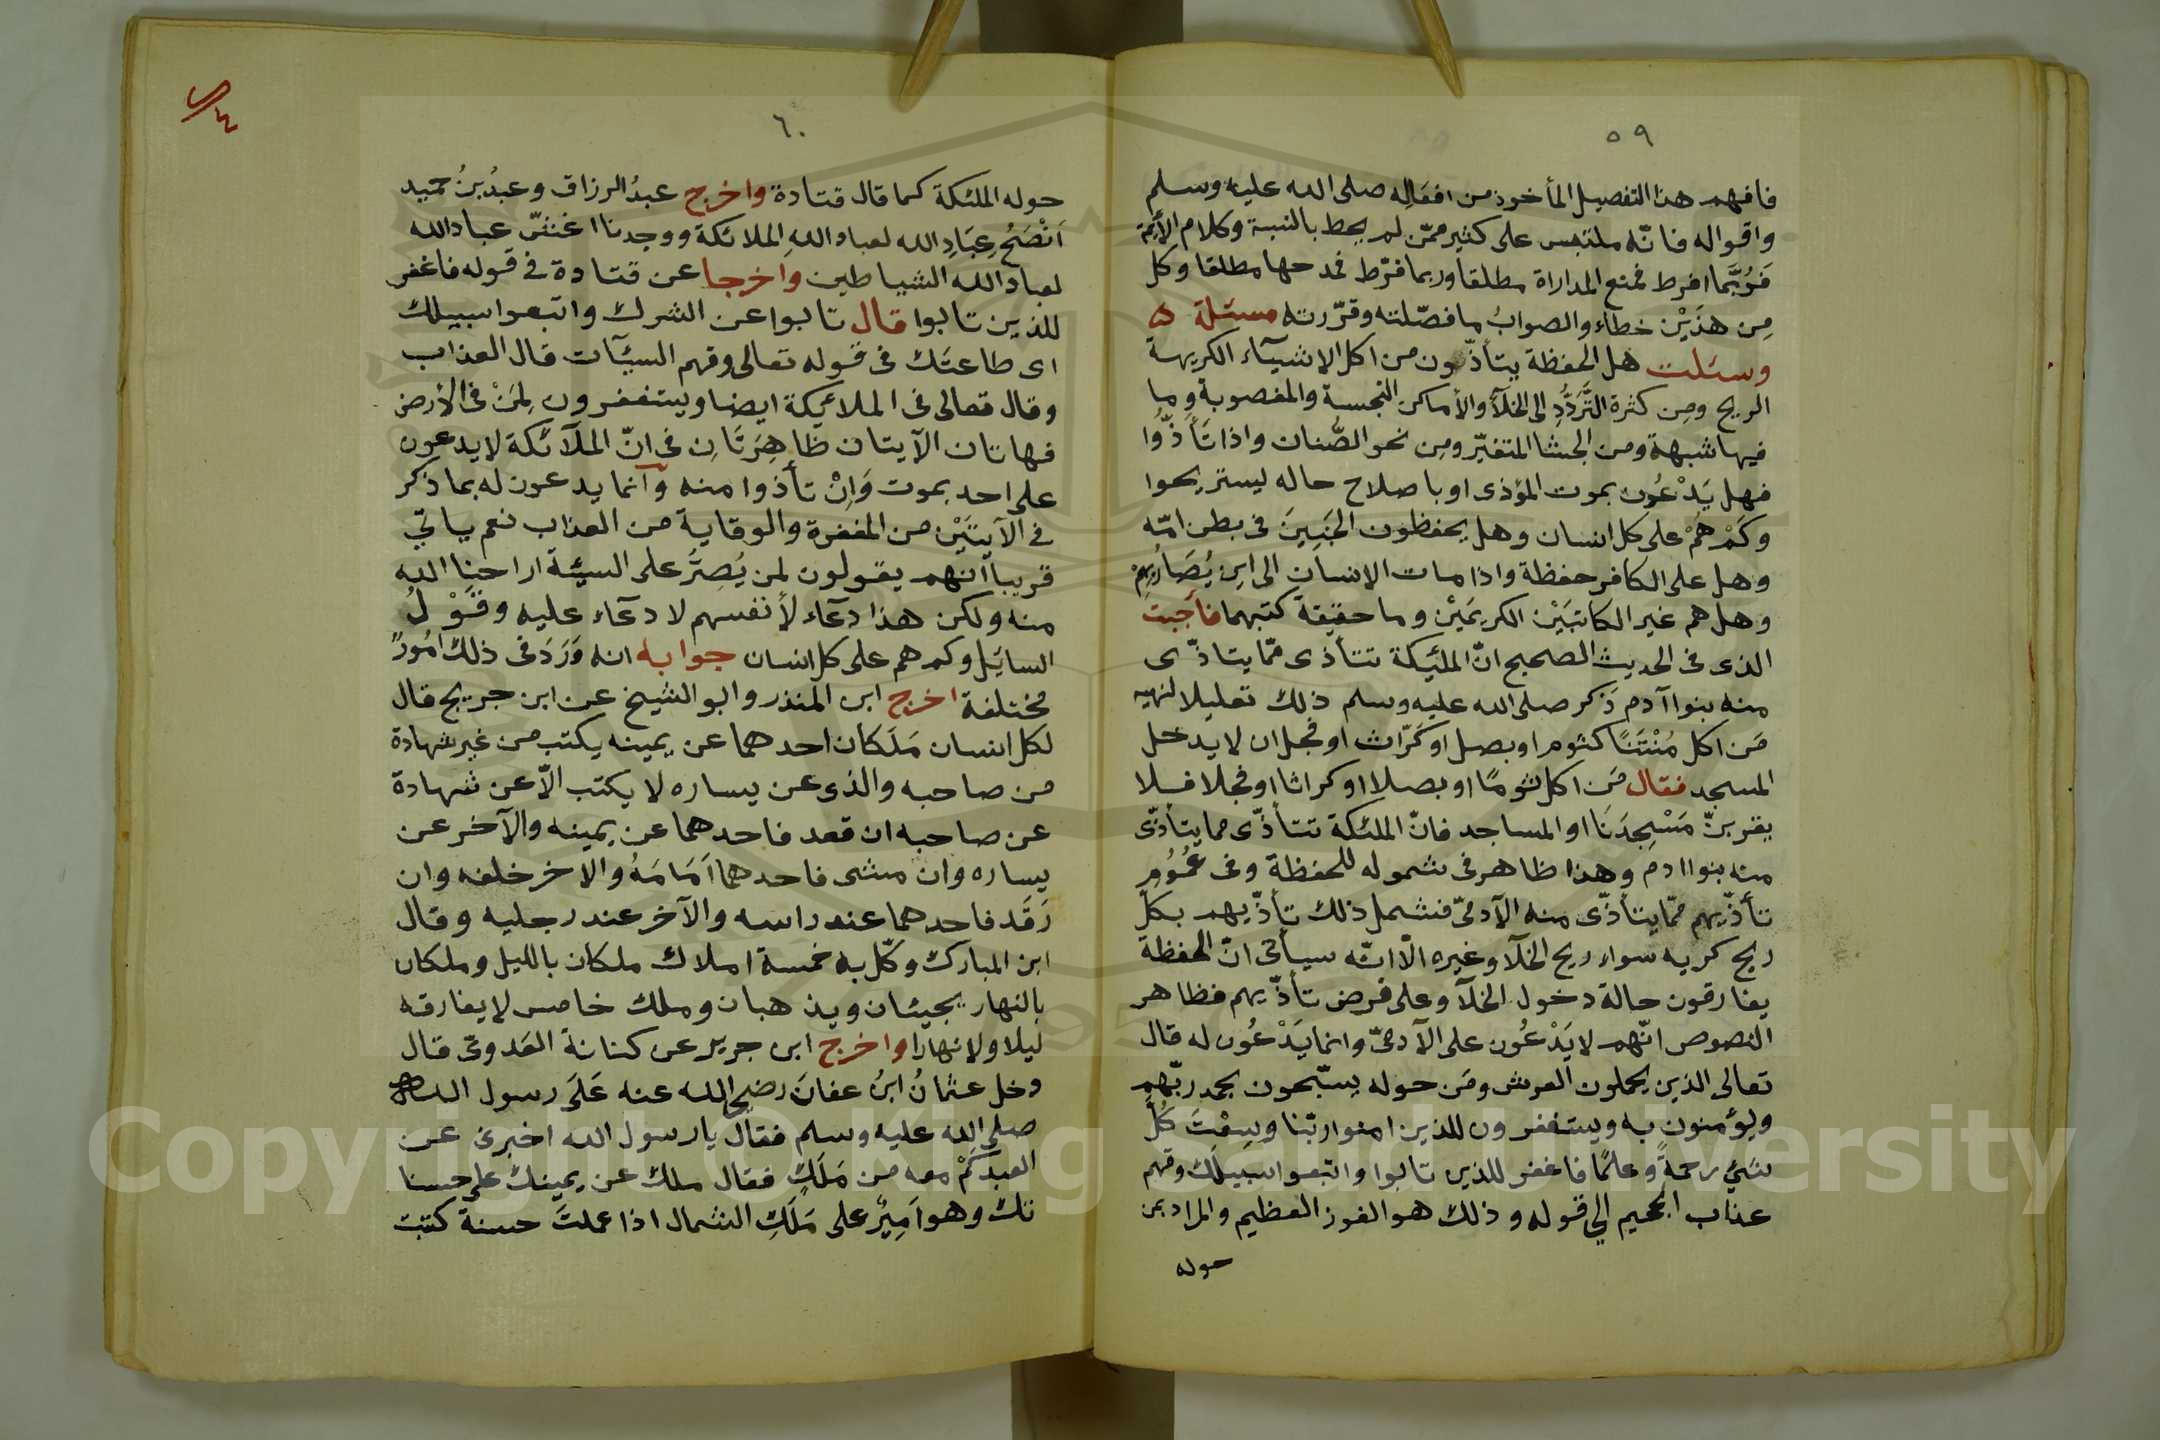 ٥٩
فافهم هذا التفصيل المأخوذ من افعاله صلى الله عليه وسلم
واقواله فانّه ملتبس على كثير ممّن لم يحط بالنسبة وكلام الأئمة
فرُبَّما افرط فمنع المداراة مطلقا وربما فرّط فمدحها مطلقا وكل
مِن هذَيْن خطاء والصوابُ ما فصّلته وقرّرته مسئلة
وسئلت هل الحفظة يتأذّون من اكل الاشيآء الكريهة
الريح ومِن كثرة التَّرَدُّدِ الى الخلآء والأماكن النجسة والمغصوبة وما
فيها شبهة ومن الجشا المتغيّر ومِن نحو الصُّنان واذا تَأَذَّوْا
فهل يَدْعُون بموت المؤذى او باصلاح حاله ليستريحوا
وكَمْ هُمْ على كل انسان وهل يحفظون الجَنِينَ فى بطن امّه
وهل على الكافر حفظة واذا مات الإنسان الى اين يُصَارُ بِهِمْ
وهل هم غير الكاتبَيْن الكريمَيْن وما حقيقة كتبهما فأجبت
الذى فى الحديث الصحيح انّ الملئكة تتأذى ممّا يتاذّى
منه بنوا آدم ذكر صلى الله عليه وسلم ذلك تعليلا لنهيه
مَن اكل مُنْتَنًا كثوم او بصل او كَرّاث او فجل ان لا يدخل
المسجد فقال مَن اكل ثومًا او بصلا او كراثا او فجلا فلا
يقربنّ مَسْجِدَنَا او المساجد فانّ الملئكة تتأذّى مما يتأذّى
منه بنوا ادم وهذا ظاهر فى شموله للحفظة وفى عُمُومِ
تأذّيهم ممّا يتأذّى منه الآدمىّ فشمل ذلك تأذّيهم بكل
ريح كريه سواء ريح الخلآ وغيره الّا انّه سيأتى انّ الحفظة
يفارقون حالة دخول الخلآ وعلى فرض تأذّيهم فظاهر
النصوص انّهم لا يَدْعُون على الآدمىّ وانما يَدْعُون له قال
تعالى الذين يحملون العرش ومَن حوله يسبّحون بحمد ربّهم
ويؤمنون به ويستغفرون للذين امنوا ربّنا وسِعْتَ كُلَّ
شىْءٍ رحمةً وعلمًا فاغفر للذين تابوا واتّبعوا سبيلَك وقهم
عذاب الجحيم الى قوله وذلك هو الفوز العظيم والمراد بمن
حوله
٦٠
حوله الملئكة كما قال قتادة واخرج عبدُ الرزاق وعبدُ بنُ حميد
اَنْصَحُ عِبَادِ الله لعباد اللهِ الملائكة ووجدنا اغشّ عباد الله
لعباد الله الشياطين واخرجا عن قتادة فى قوله فاغفر
للذين تابوا قال تابوا عن الشرك واتبعوا سبيلك
اى طاعتَك فى قوله تعالى وقهم السيّآت قال العذاب
وقال تعالى فى الملائِكة ايضا ويستغفرون لِمَنْ فى الأرض
فهاتان الآيتان ظاهِرَتَانِ فى انّ الملآئكة لا يدعون
على احد بموت وَاِنْ تأذوا منه وانما يدعون له بما ذكر
فى الآيتَيْن من المغفرة والوقاية من العذاب نعم ياتي
قريبا انهم يقولون لمن يُصِرُّ على السيّئة اراحنا الله
منه ولكن هذا دعآء لأنفسهم لا دعآء عليه وقَوْلُ
السايل وكم هم على كل انسان جوابه انه وَرَدَ فى ذلك اُمُورٌ
مختلفة اخرج ابن المنذر وابو الشيخ عن ابن جريج قال
لكل انسان مَلَكان احدهما عن يمينه يكتب من غير شهادة
من صاحبه والذى عن يساره لا يكتب الّا عن شهادة
عن صاحبه ان قعد فاحدهما عن يمينه والآخر عن
يساره وان مشى فاحدهما اَمَامَهُ والاخر خلفه وان
رَقَد فاحدهما عند راسه والآخر عند رجليه وقال
ابن المبارك وكّل به خمسة املاك ملكان بالليل وملكان
بالنهار يجيئان ويذهبان وملك خامس لا يفارقه
ليلا ولا نهارا واخرج ابن جرير عن كنانة العَدوىّ قال
دخل عثمانُ ابنُ عفانَ رضى الله عنه عَلَى رسول الله
صلى الله عليه وسلم فقال يا رسول الله اخبرنى عن
العبد كَمْ معه من مَلَكٍ فقال ملك عن يمينك على حسنا
تك وهو اَمِيرٌ على مَلَكِ الشمال اذا عملتَ حسنة كتبت
Copyright © King Saud University